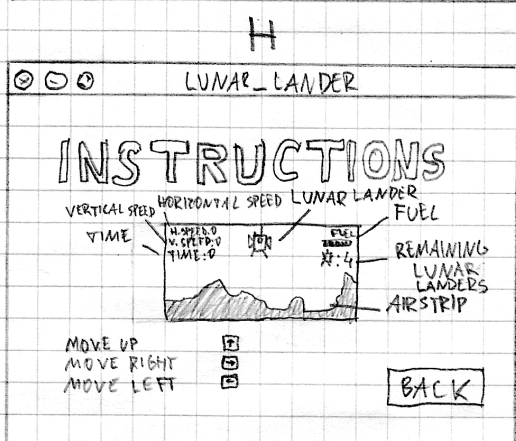 H
LUNAR_LANDER
INSTRUCTIONS
VERTICAL SPEED HORIZONTAL SPEED LUNAR LANDER
FUEL
TIME
H.SPEED:0
V.SPEED:0
TIME:0
FUEL
:4
REMAINING
LUNAR
LANDERS
AIRSTRIP
MOVE UP
MOVE RIGHT
MOVE LEFT
BACK